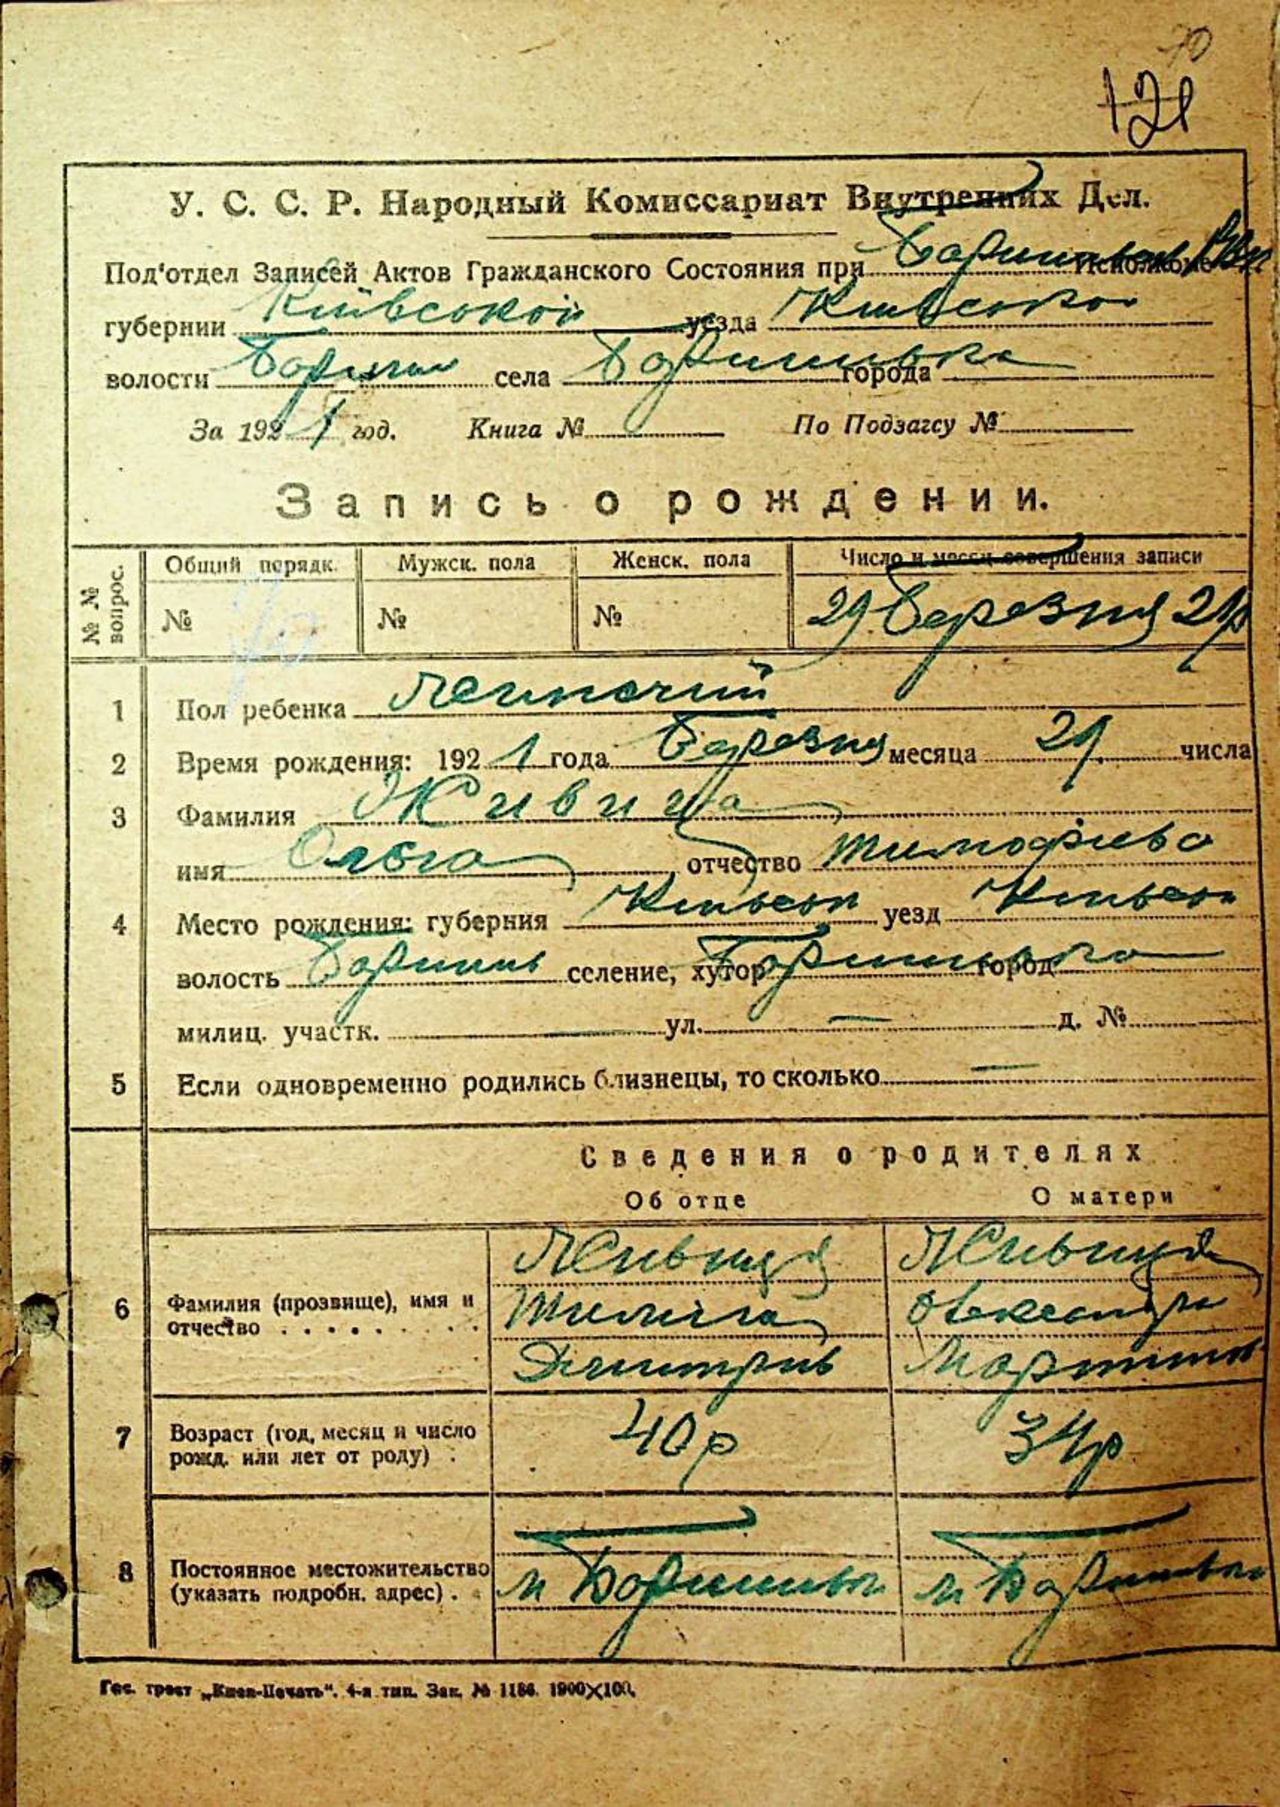 70
121
У. С. С. Р. Народный Комиссариат Внутренних Дел.
Под'отдел Записей Актов Гражданского Состояния при
губернии Київської уезда Київсько
волости села города
За 1921 год. Книга № По Подзагсу №
Запись о рождении.
№ № вопрос. Общий порядк. Мужск. пола Женск. пола Число и месяц совершения записи
№ 70 № № 29 Березня 21р
1 Пол ребенка
2 Время рождения: 1921 года Березня месяца 21 числа
3 Фамилия Живиця
имя Ольга отчество Тимофієва
4 Место рождения: губерния уезд
волость селение, хутор город
милиц. участк. — ул. — д. №
5 Если одновременно родились близнецы, то сколько —
Сведения о родителях
Об отце О матери
6 Фамилия (прозвище), имя и отчество Живиця Живиця
Дмитрів
7 Возраст (год, месяц и число рожд. или лет от роду) 40р 34р
8 Постоянное местожительство (указать подробн. адрес) м м
Гос. трест „Киев-Печать“. 4-я тип. Зак. № 1186. 1900×100.